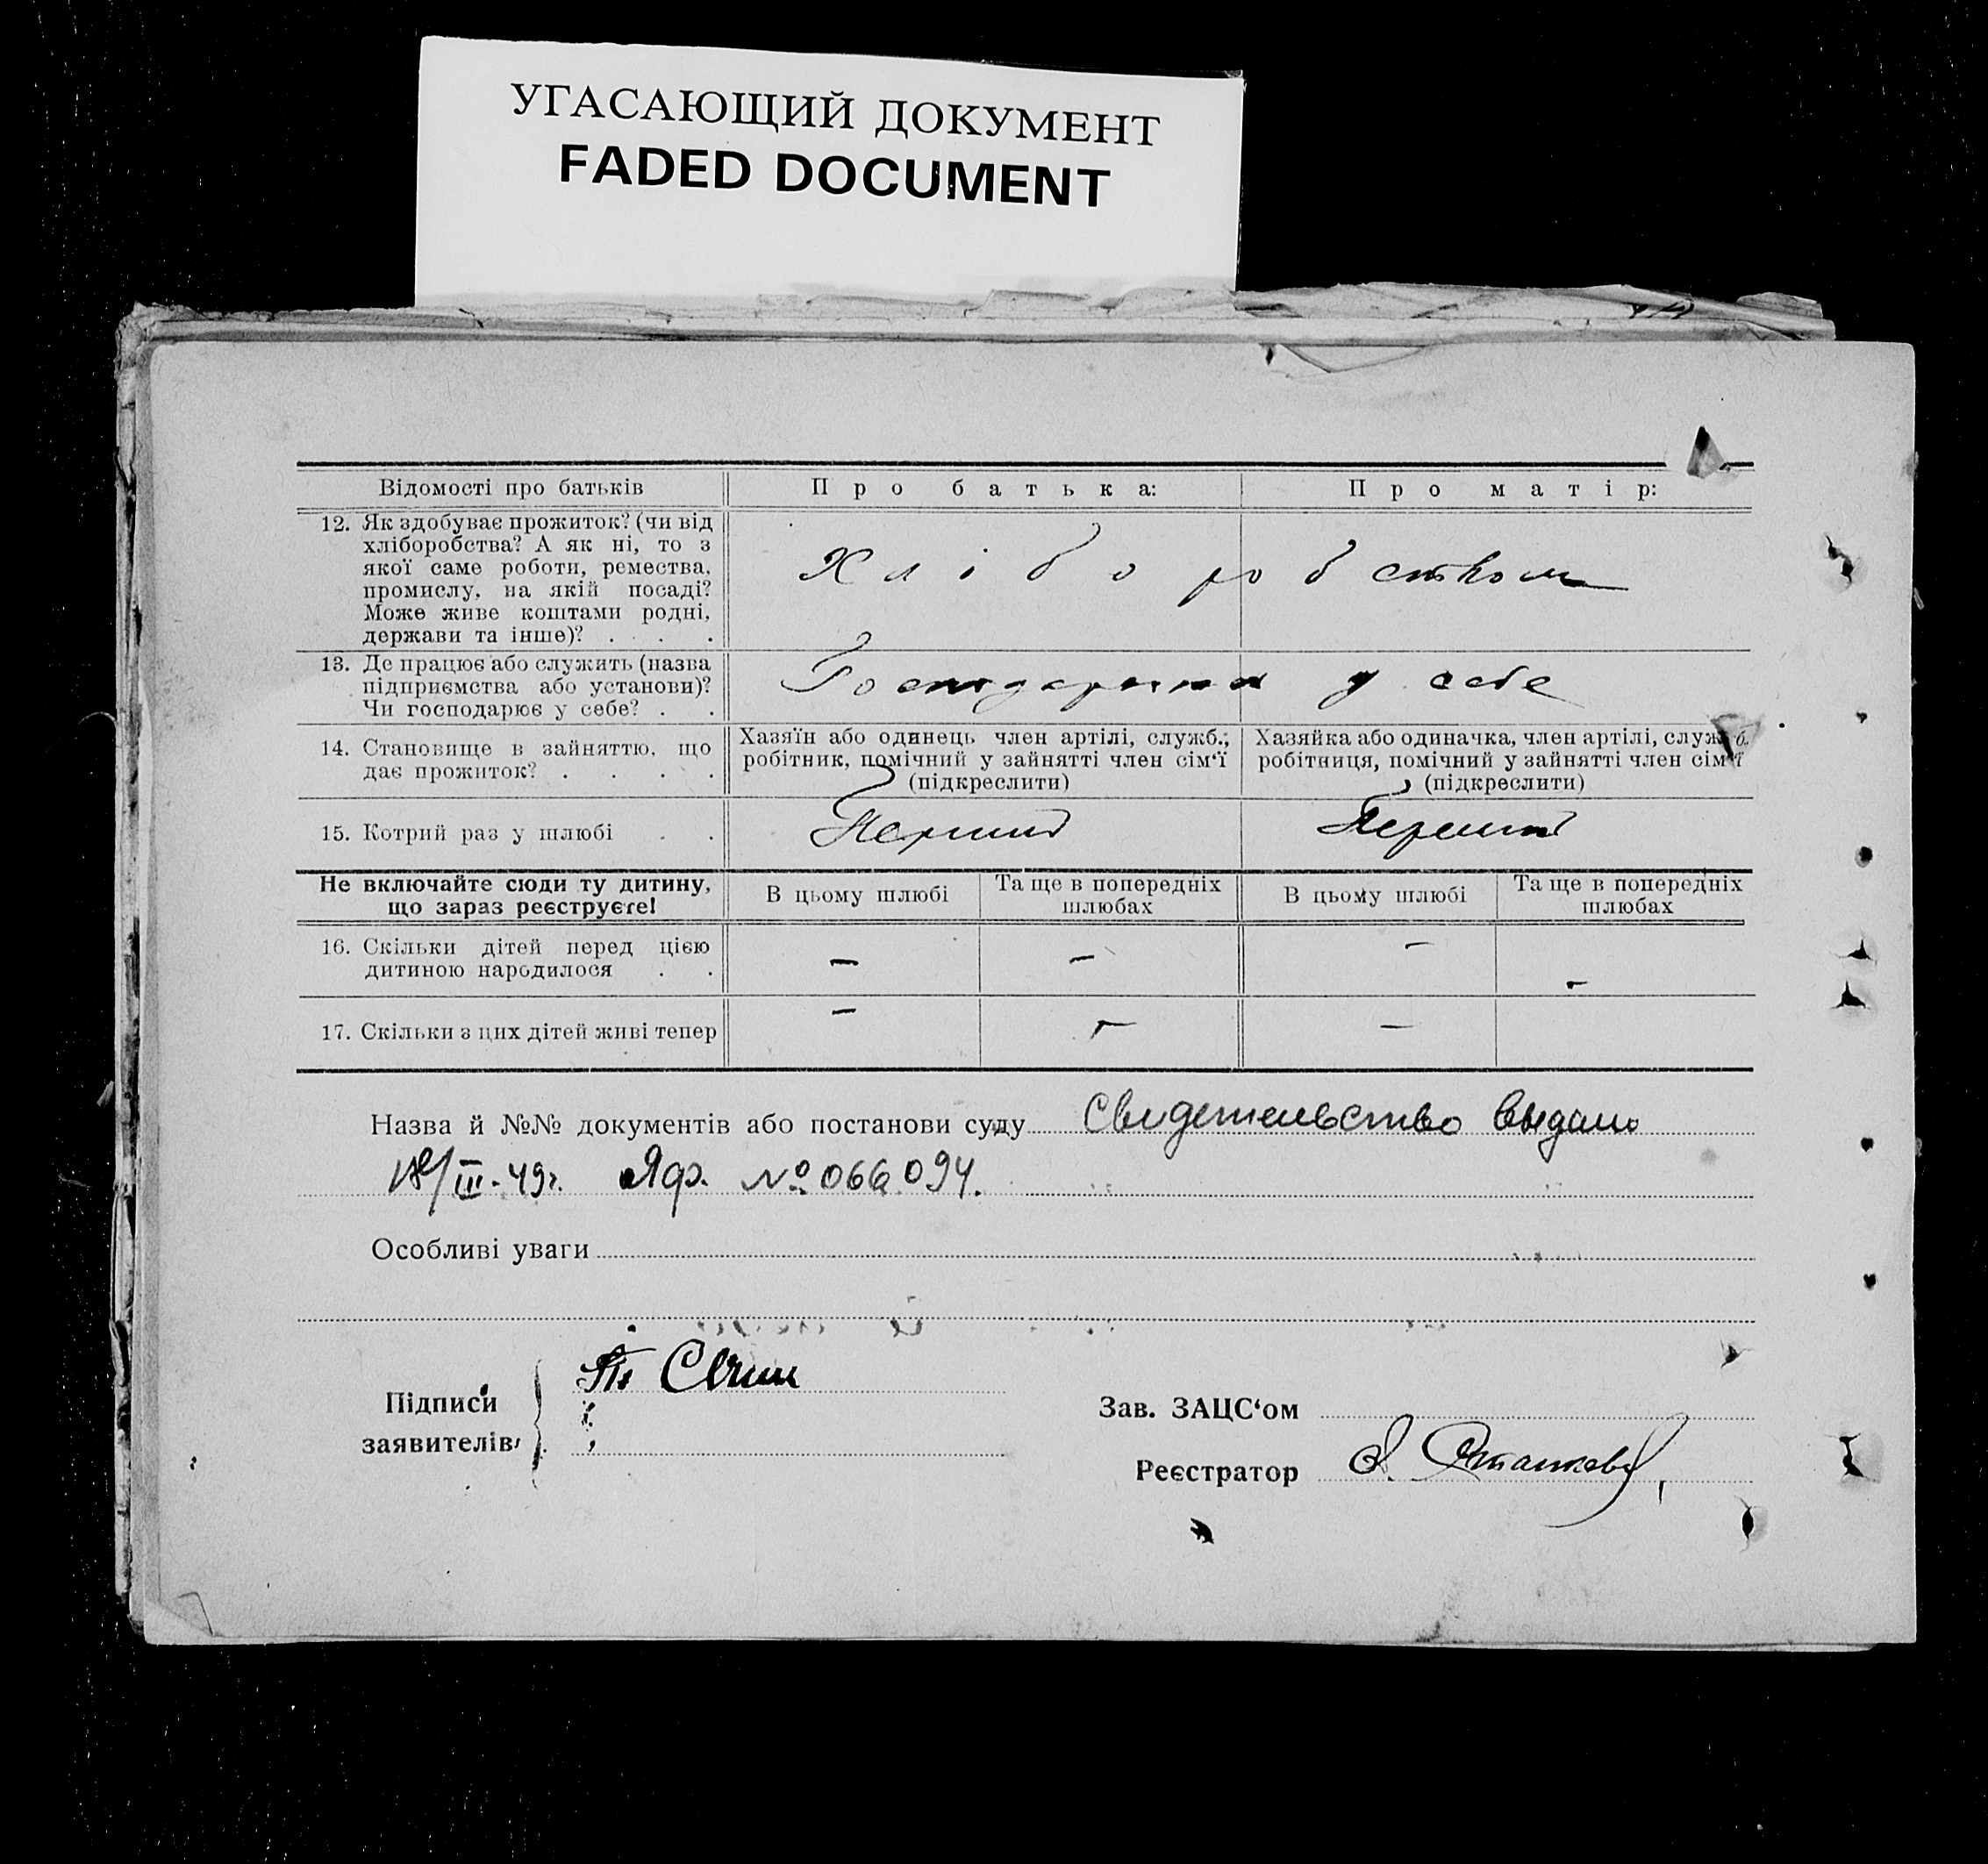 УГАСАЮЩИЙ ДОКУМЕНТ
FADED DOCUMENT
Відомості про батьків
Про батька:
Про матір:
12. Як здобуває прожиток? (чи від
хліборобства? А як ні, то з
якої саме роботи, ремества,
промислу, на якій посаді?
Може живе коштами родні,
держави та інше)? . . .
Хліборобством
13. Де працює або служить (назва
підприємства або установи)?
Чи господарює у себе? . .
у себе
14. Становище в зайняттю, що
дає прожиток? . . . .
Хазяїн або одинець член артілі, служб.;
робітник, помічний у зайнятті член сім‘ї
(підкреслити)
Хазяйка або одиначка, член артілі, служб.
робітниця, помічний у зайнятті член сім‘ї
(підкреслити)
15. Котрий раз у шлюбі . .
Перший
Перший
Не включайте сюди ту дитину,
що зараз реєструєте!
В цьому шлюбі
Та ще в попередніх
шлюбах
В цьому шлюбі
Та ще в попередніх
шлюбах
16. Скільки дітей перед цією
дитиною народилося . .
— — — —
17. Скільки з цих дітей живі тепер
— — —
Назва й №№ документів або постанови суду Свидетельство выдано
/III-49г. № 066094.
Особливі уваги
Підписи
заявителів
Зав. ЗАЦС‘ом
Реєстратор